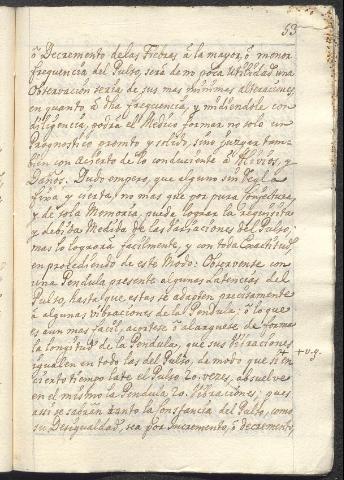 53
ò Decremento de las Fiebres à la mayor, ò menor
frequencia del Pulso, serà de no poca utilidad una
Observacion seria de sus mas minimas alteraciones
en quanto à dha frequencia, y midiendole con
diligencia, podrà el Medico formar no solo un
Prognostico prompto y solido, sino juzgar tam-
bien con acierto de lo conducente à
Daños. Dudo empero, que alguno sin Regla
fixa y cierta, no mas que por pura Conjectura,
y de sola Memoria, puede lograr la requisita
y debida Medida de las Variaciones del Pulso;
mas lo lograrà facilmente, y con toda Exactitud
en procediendo de este Modo: Observense con
una Pendula presente algunas Latencias del
Pulso, hasta que estas se adapten precisamente
à algunas vibraciones de la Pendula; ò lo que
es aun mas facil, acortese ò alarguese de forma
la longitud de la Pendula, que sus Vibraciones
igualen en todo las del Pulso, de modo que si en + + v.g.
ciento tiempo late el Pulso 20. vezes, absuelve
en el mismo la Pendula 20. Vibraciones; pues
assi se sabràn tanto la Constancia del Pulso, como
su Desigualdad, sea por Incremento, ò decremento,